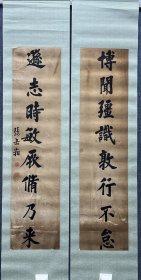 博聞彊識敦行不怠
遜志時敏厥脩乃来